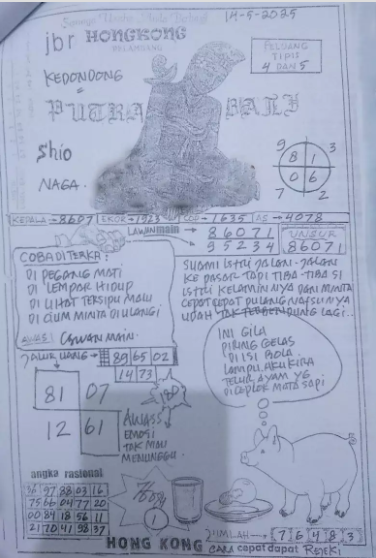 14-5-2025
jbr HONGKONG
KEDONDONG
PELUANG
TIPIS
4 DAN 5
PUTRA BALI
Shio
NAGA.
9 3
8 1
0 6
7 2
KEPALA → 8607 EKOR → 1923 COP → 1635 AS → 4078
LAWAN main → 86071
95234
86071
COBA DI TERKA:
DI PEGANG MATI
DI LEMPAR HIDUP
DI LIHAT TERSIPU MALU
DI CIUM MINTA DI ULANGI
AWAS: CAWAN MAIN.
SUAMI ISTRI JALAN-JALAN
KE PASAR TAPI TIBA-TIBA SI
ISTRI KELAMINNYA DAN MINTA
CEPAT CEPAT PULANG NAFSUNYA
UDAH TAK TERBENDUNG LAGI..
JALUR UANG → 89 65 02
14 73
81 07
12 61
AWASS
EMOSI
TAK MAU
MENUNGGU.
INI GILA
PIRING GELAS
DI ISI BOLA
LAMPU, AKU KIRA
TELUR AYAM YG
DI CEPLOK MATA SAPI
angka rasional
36 97 88 03 16
75 66 04 77 20
00 84 18 56 11
21 70 41 98 37
1
HONG KONG
JUMLAH → 7 6 4 8 3
CARA cepat dapat REJEKI